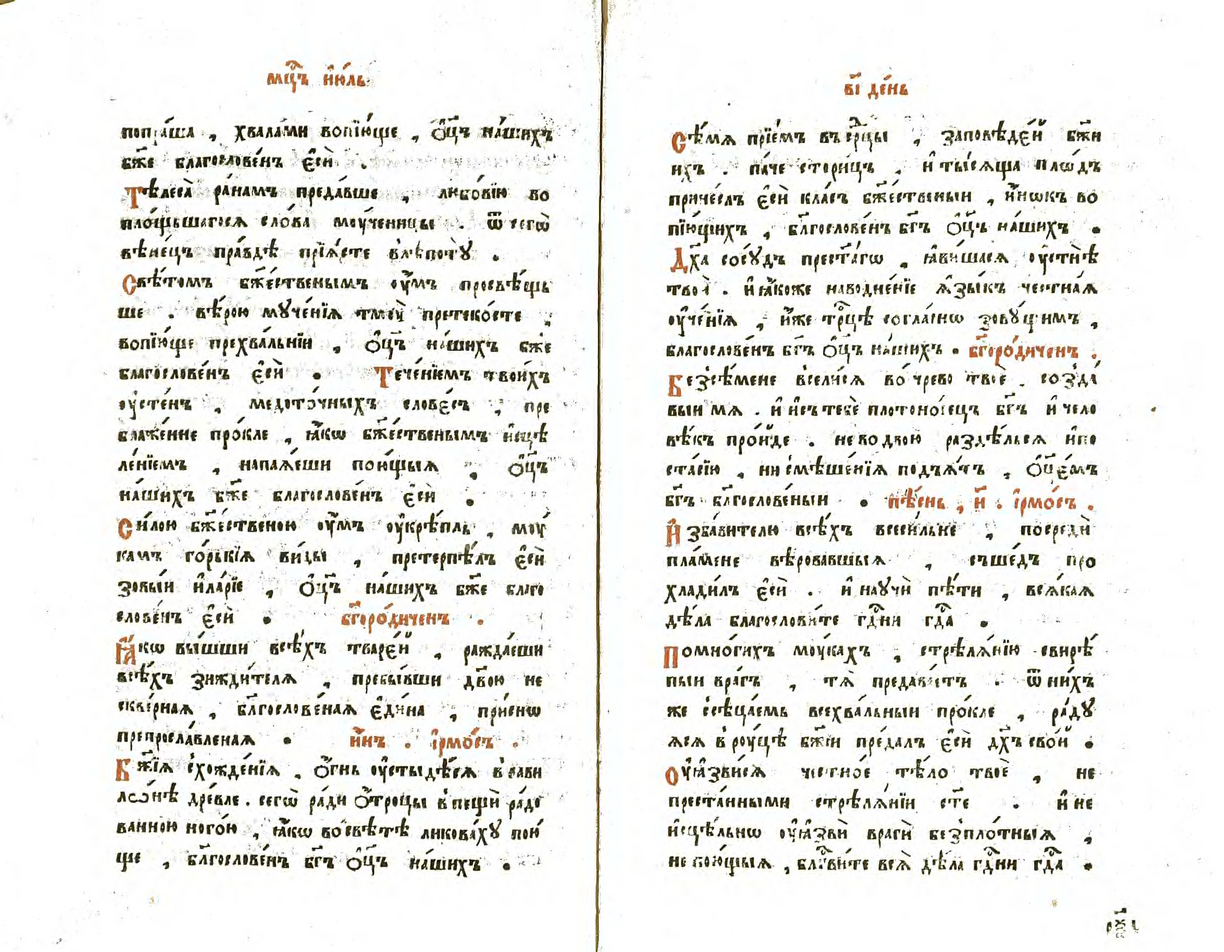 мцⷭ҇ъ і҆ю́ль
попра́ша , хвала́ми вопїю́ще , ѻ҆ц҃ъ на́шихъ
бж҃е благослове́нъ є҆сѝ .
Тѣлеса̀ ра́намъ преда́вше , любо́вїю во
пло́щьшагося сло́ва мꙋ́ченицы . ѿ сегѡ̀
вѣне́цъ пра́вдѣ прїѧ́сте влѣ́потꙋ .
Свѣ́томъ бж҃е́ственымъ оу҆́мъ просвѣ́щь
ше . вѣ́рою мꙋче́нїя тмоу̀ претеко́сте ,
вопїю́ще прехва́льнїи , ѻ҆ц҃ъ на́шихъ бж҃е
благослове́нъ є҆сѝ . Тече́нїемъ твои́хъ
оу҆сте́нъ , медото́чныхъ слове́съ , пре
блаже́нне про́кле , ꙗ҆́кѡ бж҃е́ственымъ и҆сцѣ
ле́нїемъ , напаѧ́еши пою́щыя , ѻ҆ц҃ъ
на́шихъ бж҃е благослове́нъ є҆сѝ .
Си́лою бж҃е́ственою оу҆́мъ оу҆крѣ́пль , моу́
камъ го́рькїя ви́ды , претерпѣ́лъ є҆сѝ
зовы́и и҆ла́рїе , ѻ҆ц҃ъ на́шихъ бж҃е благо
слове́нъ є҆сѝ . бг҃оро́диченъ .
Ꙗ҆́кѡ вы́шши всѣ́хъ тва́рей , ражда́еши
всѣ́хъ зижди́теля , пребы́вши дв҃ою не
скве́рная , бл҃гослове́ная є҆ди́на , при́снѡ
препросла́вленая . и҆́нъ . і҆рмо́съ .
Бж҃їя схожде́нїя , ѻ҆́гнь оу҆стыдѣ́ся в вави
лѡ́нѣ дре́вле . сегѡ̀ ра́ди ѻ҆́троцы в пещѝ ра́до
ванною ного́ю , ꙗ҆́кѡ во свѣ́тѣ ликова́хꙋ пою́
ще , бл҃гослове́нъ бг҃ъ ѻ҆ц҃ъ на́шихъ .
в҃і де́нь
Сѣ́мя прїе́мъ въ ср҃цы , за́повѣдей бж҃и
ихъ . па́че стори́цъ , и҆ ты́сяща пло́дъ
прине́слъ є҆сѝ кла́съ бж҃е́ственыи , и҆́нѡкъ во
пїю́щихъ , бл҃гослове́нъ бг҃ъ ѻ҆ц҃ъ на́шихъ .
Дх҃а сосꙋ́дъ прест҃а́гѡ , ꙗ҆ви́шася оу҆стнѣ̀
твоѝ . и҆ ꙗ҆́коже наводне́нїе ꙗ҆зы́къ че́стная
оу҆че́нїя , и҆́же трⷪ҇цѣ согла́снѡ зовꙋ́щимъ ,
благослове́нъ бг҃ъ ѻ҆ц҃ъ на́шихъ . бг҃оро́диченъ .
Безсѣ́мене всели́ся во чре́во твоѐ . созда́
выи мя . и҆ и҆съ тебѐ плотоно́сецъ бг҃ъ и҆ чело
вѣ́къ про́йде . не во двою̀ раздѣ́лься и҆по
ста́сїю , ни смѣше́нїя подъѧ́тъ , ѻ҆ц҃е́мъ
бг҃ъ бл҃гослове́ныи . пѣ́снь , и҃ . і҆рмо́съ .
И҆зба́вителю всѣ́хъ всеси́льне , посредѝ
пла́мене вѣ́ровавшыя , съше́дъ про
хлади́лъ є҆сѝ . и҆ наꙋчѝ пѣ́ти , вся́кая
дѣ́ла благослови́те гдⷭ҇ни гдⷭ҇а .
По мно́гихъ моу́кахъ , стрѣлѧ́нїю свирѣ́
пыи вра́гъ , тѧ̀ предава́етъ . ѿ ни́хъ
же сѣцаемь всехва́льныи про́кле , ра́дꙋ
яся в рꙋ́цѣ бж҃їи преда́лъ є҆сѝ дх҃ъ сво́й .
Оу҆ꙗ҆зви́ся че́стно́е тѣ́ло твоѐ , не
преста́нными стрѣлѧ́нїи ст҃е . и҆ не
и҆сцѣ́льнѡ оу҆ꙗ҆звѝ врагѝ безпло́тныя ,
не пою́щыя , блⷭ҇ви́те всѧ̀ дѣ́ла гдⷭ҇ни гдⷭ҇а .